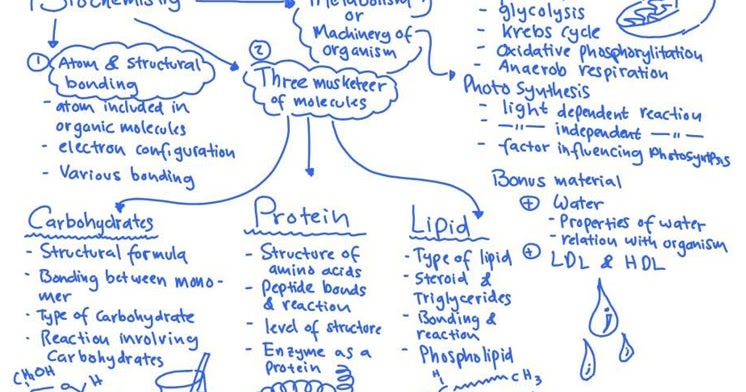 Biochemistry
Metabolism
or
Machinery of
organism
- glycolysis
- Krebs cycle
- Oxidative phosphorylitation
- Anaerob respiration
Photo Synthesis
- light dependent reaction
- —〃— independent —〃—
- factor influencing Photosyntesis
① Atom & Structural
bonding
- atom included in
organic molecules
- electron configuration
- Various bonding
②
Three musketeer
of molecules
Carbohydrates
- Structural formula
- Bonding between mono-
mer
- Type of Carbohydrate
- Reaction involving
Carbohydrates
CH₂OH
H
Protein
- Structure of
amino acids
- Peptide bonds
& reaction
- level of structure
- Enzyme as a
Protein
Lipid
- Type of lipid
- Steroid &
Triglycerides
- Bonding &
reaction
- Phospholipid
H
CH₃
Bonus material
⊕ Water
- Properties of water
- relation with organism
⊕ LDL & HDL